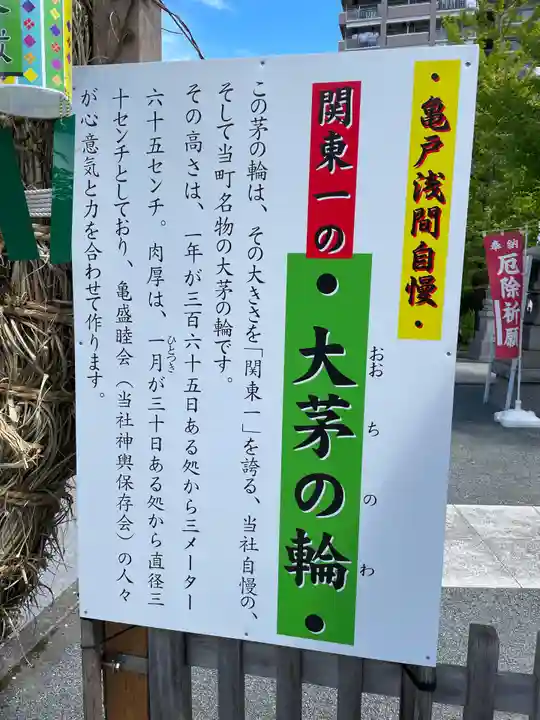 ・亀戸浅間自慢・
関東一の・大茅の輪・
おおちのわ
この茅の輪は、その大きさを「関東一」を誇る、当社自慢の、
そして当町名物の大茅の輪です。
その高さは、一年が三百六十五日ある処から三メーター
六十五センチ。肉厚は、一月が三十日ある処から直径三
ひとつき
十センチとしており、亀盛睦会（当社神輿保存会）の人々
が心意気と力を合わせて作ります。
奉納
厄除祈願